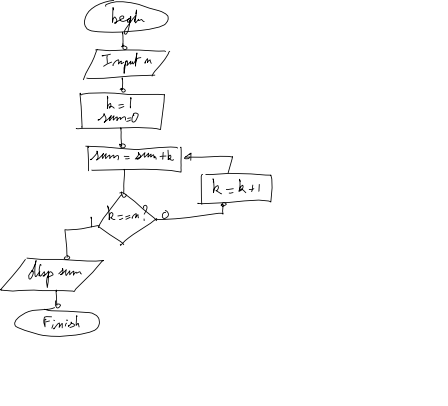 begin
Input n
k=1
sum=0
sum = sum+k
k = k+1
k==n?
1
0
disp sum
Finish